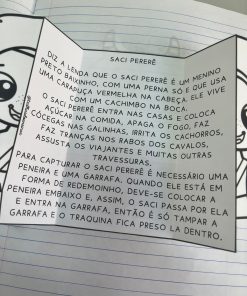 SACI PERERÊ
DIZ A LENDA QUE O SACI PERERÊ É UM MENINO
PRETO BAIXINHO, COM UMA PERNA SÓ E QUE USA
UMA CARAPUÇA VERMELHA NA CABEÇA. ELE VIVE
COM UM CACHIMBO NA BOCA.
O SACI PERERÊ ENTRA NAS CASAS E COLOCA
AÇÚCAR NA COMIDA, APAGA O FOGO, FAZ
CÓCEGAS NAS GALINHAS, IRRITA OS CACHORROS,
FAZ TRANÇAS NOS RABOS DOS CAVALOS,
ASSUSTA OS VIAJANTES E MUITAS OUTRAS
TRAVESSURAS.
PARA CAPTURAR O SACI PERERÊ É NECESSÁRIO UMA
PENEIRA E UMA GARRAFA. QUANDO ELE ESTÁ EM
FORMA DE REDEMOINHO, DEVE-SE COLOCAR A
PENEIRA EMBAIXO E, ASSIM, O SACI PASSA POR ELA
E ENTRA NA GARRAFA, ENTÃO É SÓ TAMPAR A
GARRAFA E O TRAQUINA FICA PRESO LÁ DENTRO.